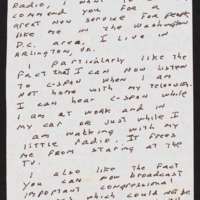 Radio, I want to
commend you for a
great new service for people
like me in the Washington
D.C. area, I live in
Arlington, Va.
I particularly like the
fact that I can now listen
to C-SPAN when I am
not home with my television.
I can hear C-SPAN while
I am at work and in
my car or just while I
am walking with my
little radio. It frees
me from staring at the
TV.
I also like the fact
you can now broadcast
important congressional
which could not be